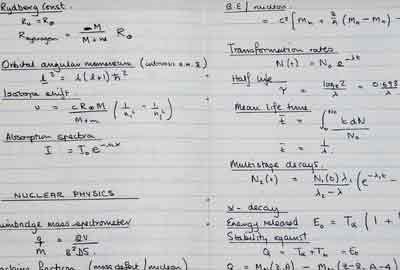 Rydberg Const.
R∞ = R∞
R Hydrogen = M / M + m R∞
Orbital angular momentum
l² = l(l+1) ħ²
Isotope shift
ν = cR∞M / M+m (1/n² - 1/n²)
Absorption spectra
I = I₀e
NUCLEAR PHYSICS
mass spectrometer
q/M = 2V / B²DS
fraction (mass defect / nucleon)
B.E / nucleon
= c² [Mn + (Mn - Mn) -
Transformation rates
N(t) = N₀ e^-λt
Half life
τ = loge2 / λ = 0.693 / λ
Mean life time
t̄ = ∫ t dN / N₀
t̄ = 1/λ
Multistage decays.
N₂(t) = N₁(0) λ₁ / λ₂ - λ (e^-λ₁t -
α - decay
Energy released E₀ = Tα (1 +
Stability against
Q = Tα + Tb = E₀
Q = (Z,A) - (Z-2, A-4)